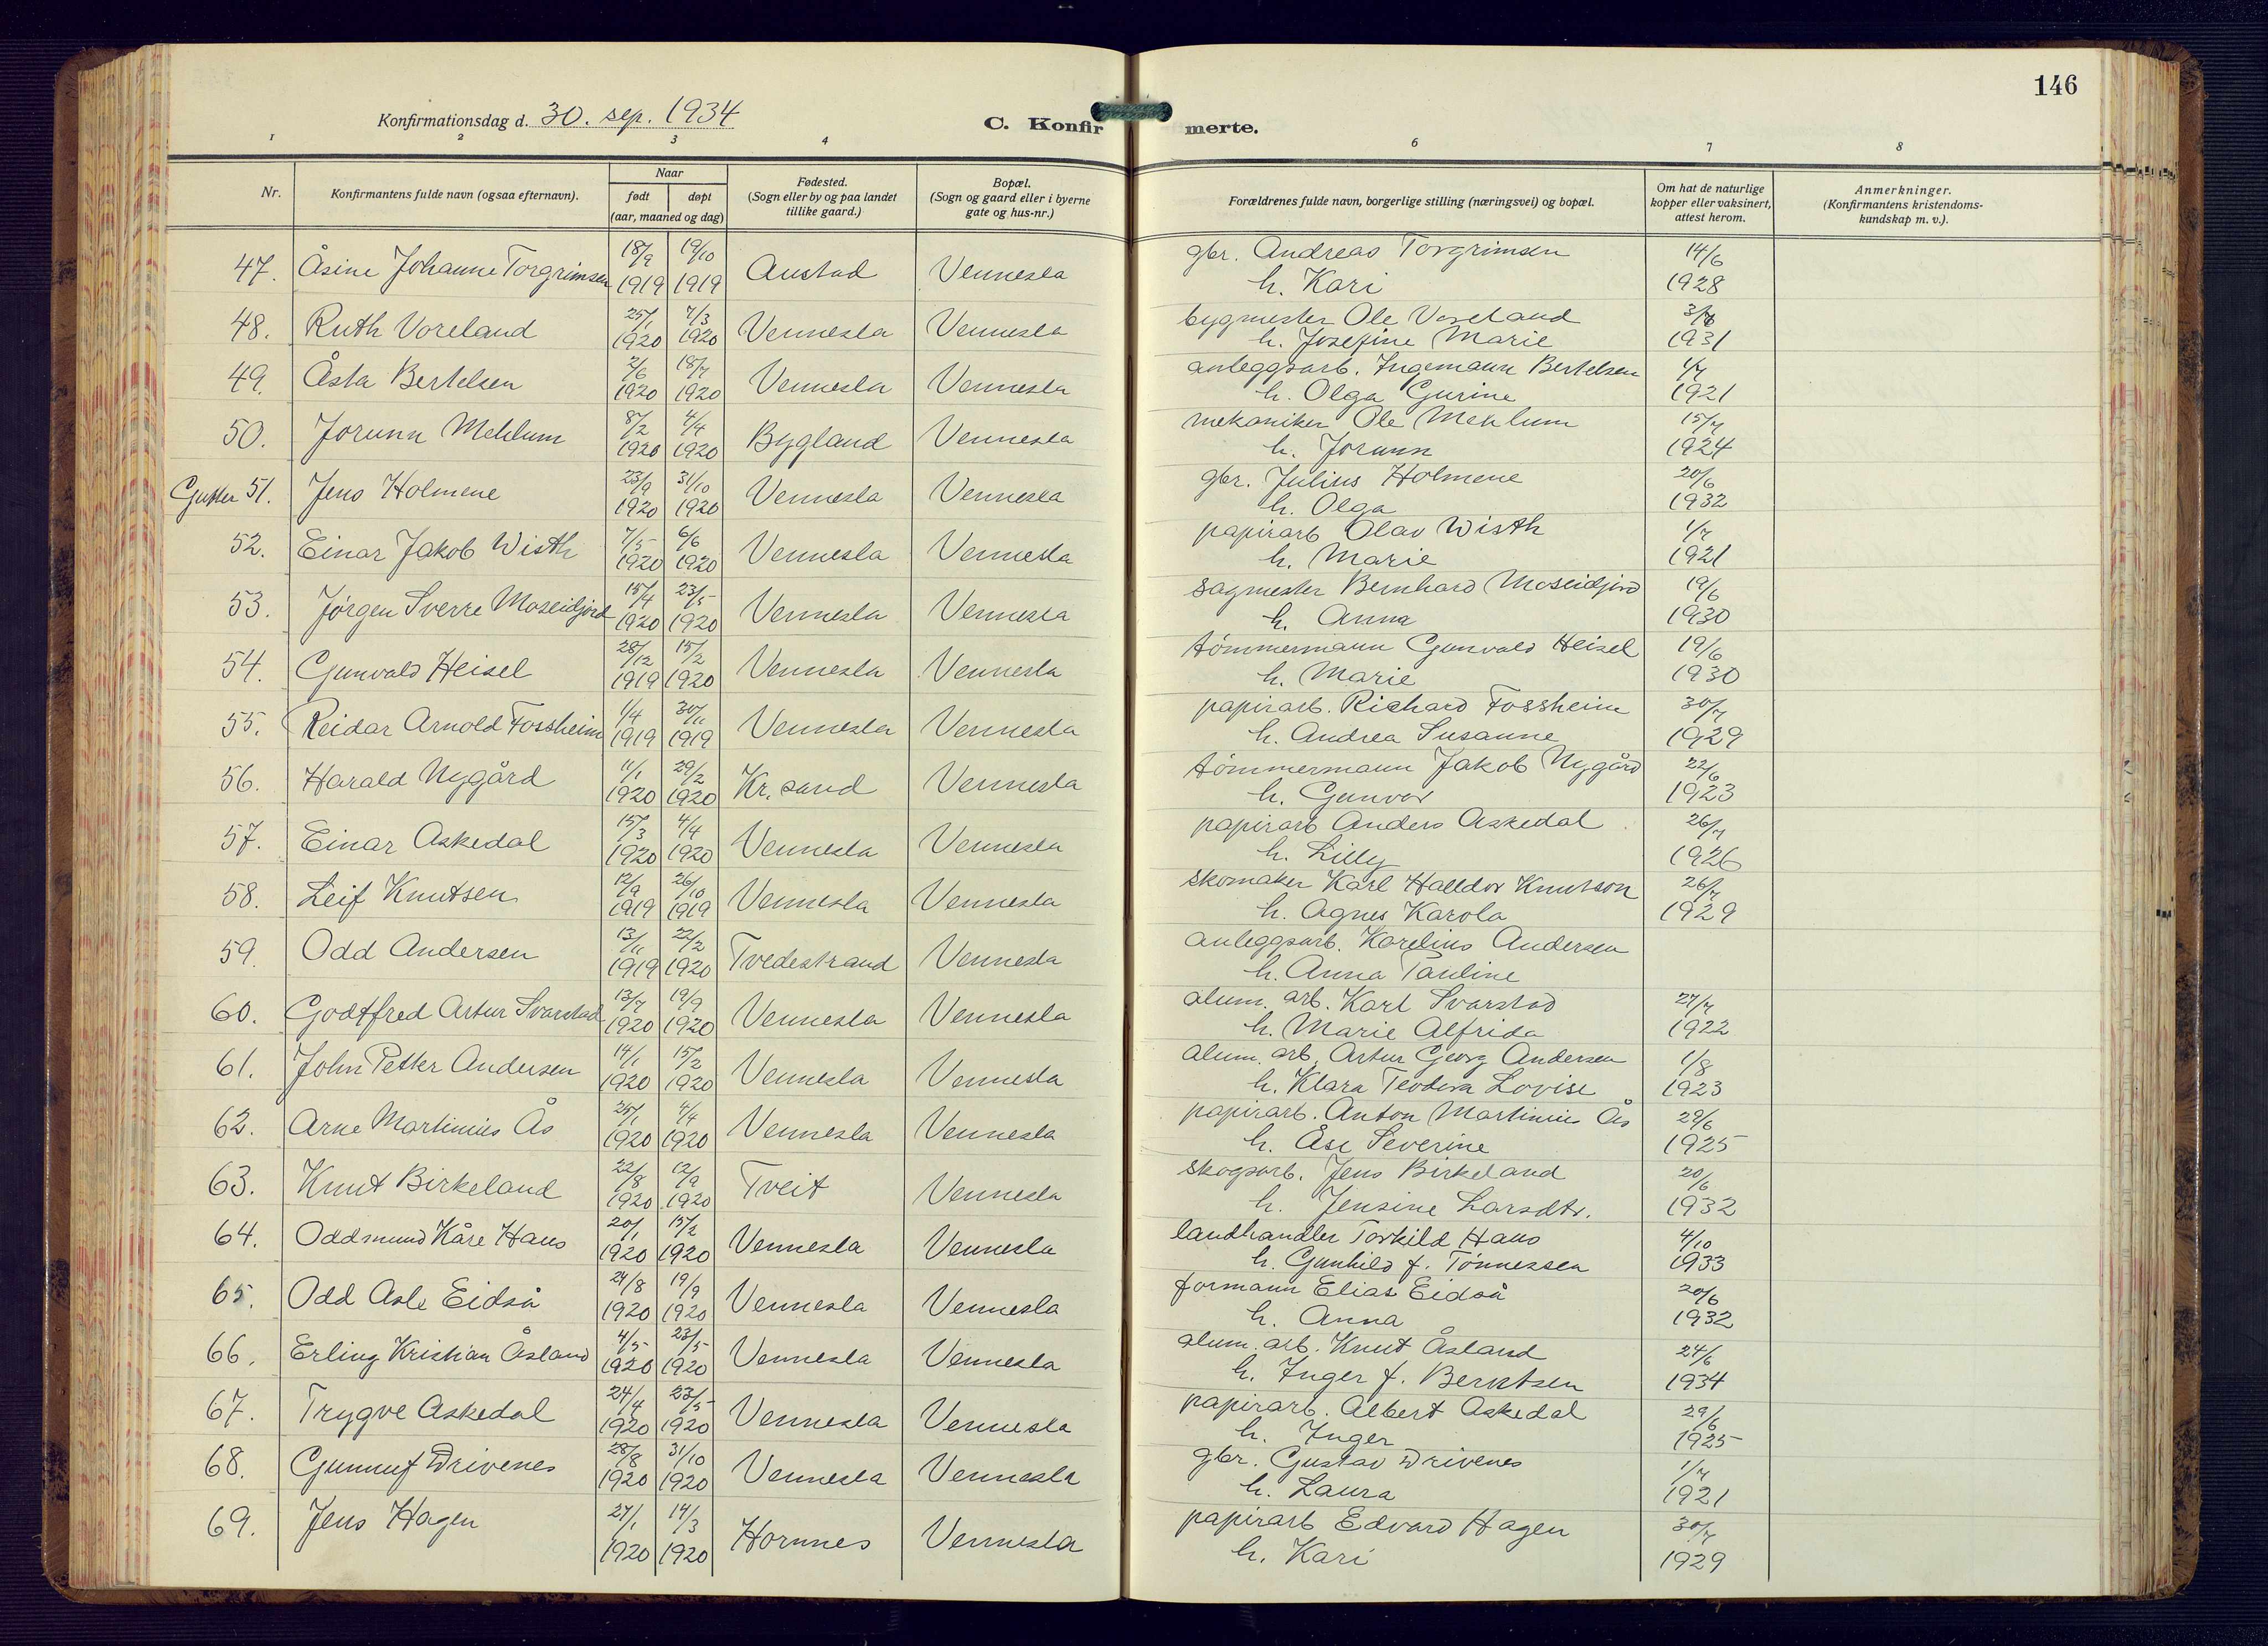 146
Konfirmationsdag d. 30. sep. 1934
C. Konfirmerte.
1 2 3 4 6 7 8
Nr. Konfirmantens fulde navn (ogsaa efternavn). Naar født døpt (aar, maaned og dag) Fødested. (Sogn eller by og paa landet tillike gaard.) Bopæl. (Sogn og gaard eller i byerne gate og hus-nr.) Forældrenes fulde navn, borgerlige stilling (næringsvei) og bopæl. Om hat de naturlige kopper eller vaksinert, attest herom. Anmerkninger. (Konfirmantens kristendomskundskap m. v.).
47. Åsine Johanne Torgrimsen 18/9 1919 19/10 1919 Austad Vennesla gbr. Andreas Torgrimsen 14/6
h. Kari 1928
48. Ruth Voreland 25/1 1920 7/3 1920 Vennesla Vennesla bygmester Ole Voreland
h. Josefine Marie 1931
49. Åsta Bertelsen 2/6 1920 18/7 1920 Vennesla Vennesla anleggsarb. Ingemann Bertelsen 1/7
h. Olga Gurine 1921
50. Jorunn Mehlum 8/2 1920 4/4 1920 Bygland Vennesla mekaniker Ole Mehlum 15/7
h. Jorunn 1924
Gutter 51. Jens Holmene 23/9 1920 31/10 1920 Vennesla Vennesla gbr. Julius Holmene 20/6
h. Olga 1932
52. Einar Jakob Wisth 7/5 1920 6/6 1920 Vennesla Vennesla papirarb Olav Wisth 1/7
h. Marie 1921
53. Jørgen Sverre Moseidjord 15/4 1920 23/5 1920 Vennesla Vennesla sagmester Bernhard Moseidjord 19/6
h. Anna 1930
54. Gunvald Heisel 28/12 1919 15/2 1920 Vennesla Vennesla tømmermann Gunvald Heisel 19/6
h. Marie 1930
55. Reidar Arnold Fossheim 1/4 1919 30/11 1919 Vennesla Vennesla papirarb. Richard Fossheim 30/7
h. Andrea Susanne 1929
56. Harald Nygård 11/1 1920 29/2 1920 Kr. sand Vennesla tømmermann Jakob Nygård 22/6
h. Gunvor 1923
57. Einar Askedal 15/3 1920 4/4 1920 Vennesla Vennesla papirarb Anders Askedal 26/7
h. Lilly 1926
58. Leif Knutsen 12/9 1919 26/10 1919 Vennesla Vennesla skomaker Karl Halldor Knutson 26/7
h. Agnes Karola 1929
59. Odd Andersen 13/11 1919 22/2 1920 Tvedestrand Vennesla anleggsarb. Karelius Andersen
h. Anna Pauline
60. Godtfred Artur Svarstad 13/7 1920 19/9 1920 Vennesla Vennesla alum. arb. Karl Svarstad 27/7
h. Marie Alfrida 1922
61. John Petter Andersen 14/1 1920 15/2 1920 Vennesla Vennesla alum. arb. Artur Georg Andersen 1/8
h. Klara Teodora Lovise 1923
62. Arne Martinius Ås 25/1 1920 4/4 1920 Vennesla Vennesla papirarb. Anton Martinius Ås 29/6
h. Åse Severine 1925
63. Knut Birkeland 22/8 1920 12/9 1920 Tveit Vennesla skogsarb. Jens Birkeland 20/6
h. Jensine Larsdtr. 1932
64. Oddmund Kåre Haus 20/1 1920 15/2 1920 Vennesla Vennesla landhandler Torkild Haus 4/10
h. Gunhild f. Tønnessen 1933
65. Odd Asle Eidså 24/8 1920 19/9 1920 Vennesla Vennesla formann Elias Eidså 20/6
h. Anna 1932
66. Erling Kristian Åsland 4/5 1920 23/5 1920 Vennesla Vennesla alum. arb. Knut Åsland 24/6
h. Inger f. Berntsen 1934
67. Trygve Askedal 24/4 1920 23/5 1920 Vennesla Vennesla papirarb. Albert Askedal 29/6
h. Inger 1925
68. Gunnuf Drivenes 28/8 1920 31/10 1920 Vennesla Vennesla gbr. Gustav Drivenes 1/7
h. Laura 1921
69. Jens Hagen 27/1 1920 14/3 1920 Hornnes Vennesla papirarb Edvard Hagen 30/7
h. Kari 1929